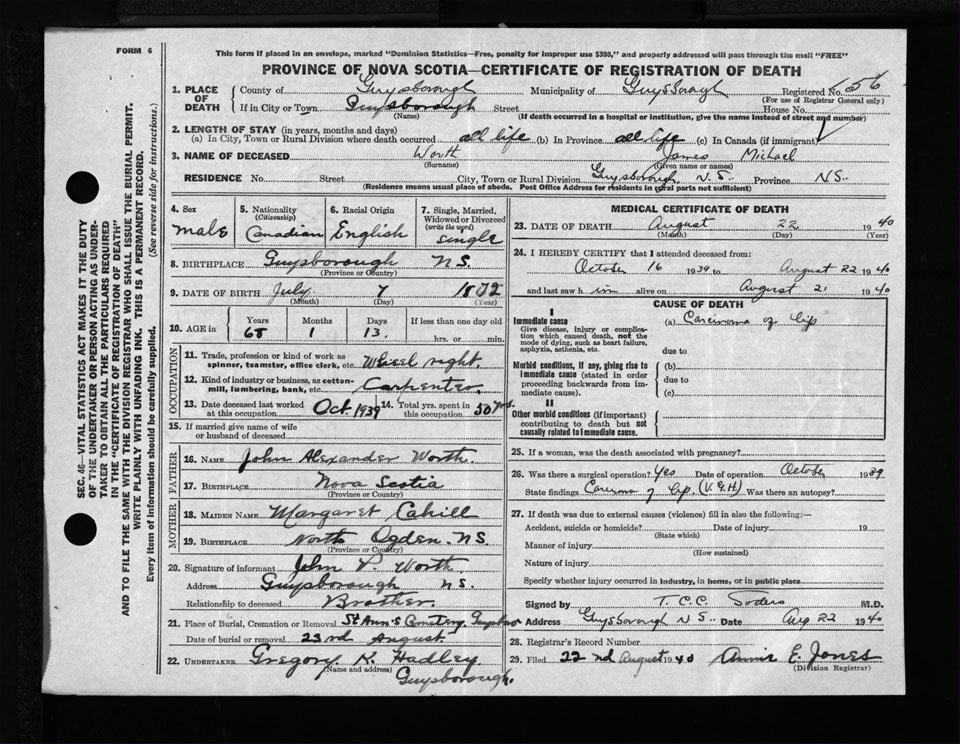 FORM 6
This form if placed in an envelope, marked "Dominion Statistics—Free, penalty for improper use $300," and properly addressed will pass through the mail "FREE"
PROVINCE OF NOVA SCOTIA—CERTIFICATE OF REGISTRATION OF DEATH
SEC. 46—VITAL STATISTICS ACT MAKES IT THE DUTY
OF THE UNDERTAKER OR PERSON ACTING AS UNDER-
TAKER TO OBTAIN ALL THE PARTICULARS REQUIRED
IN THE "CERTIFICATE OF REGISTRATION OF DEATH"
AND TO FILE THE SAME WITH THE DIVISION REGISTRAR WHO SHALL ISSUE THE BURIAL PERMIT.
WRITE PLAINLY WITH UNFADING INK. THIS IS A PERMANENT RECORD.
Every item of information should be carefully supplied. (See reverse side for instructions.)
1. PLACE OF DEATH
County of Guysborough Municipality of Guysborough Registered No. 656
(For use of Registrar General only)
If in City or Town Guysborough Street House No.
(Name) (If death occurred in a hospital or institution, give the name instead of street and number)
2. LENGTH OF STAY (in years, months and days)
(a) In City, Town or Rural Division where death occurred all life (b) In Province all life (c) In Canada (if immigrant)
3. NAME OF DECEASED Worth James Michael
(Surname) (Given name or names)
RESIDENCE No. Street City, Town or Rural Division Guysborough N.S. Province N.S.
(Residence means usual place of abode. Post Office Address for residents in rural parts not sufficient)
4. Sex male
5. Nationality (Citizenship) Canadian
6. Racial Origin English
7. Single, Married, Widowed or Divorced (write the word) single
8. BIRTHPLACE Guysborough N.S.
(Province or Country)
9. DATE OF BIRTH July 7 1872
(Month) (Day) (Year)
10. AGE in Years 68 Months 1 Days 13 If less than one day old hrs. or min.
OCCUPATION
11. Trade, profession or kind of work as spinner, teamster, office clerk, etc. Wheel right.
12. Kind of industry or business, as cotton-mill, lumbering, bank, etc. Carpenter
13. Date deceased last worked at this occupation Oct 1939 14. Total yrs. spent in this occupation 50 yrs.
15. If married give name of wife or husband of deceased
FATHER
16. NAME John Alexander Worth
17. BIRTHPLACE Nova Scotia
(Province or Country)
MOTHER
18. MAIDEN NAME Margaret Cahill
19. BIRTHPLACE North Ogden. N.S.
(Province or Country)
20. Signature of informant John P. Worth
Address Guysborough N.S.
Relationship to deceased Brother.
21. Place of Burial, Cremation or Removal St Ann's Cemetery,
Date of burial or removal 23rd August
22. UNDERTAKER Gregory K. Hadley
(Name and address)
Guysborough.
MEDICAL CERTIFICATE OF DEATH
23. DATE OF DEATH August 22 1940
(Month) (Day) (Year)
24. I HEREBY CERTIFY that I attended deceased from:
October 16 1939 to August 22 1940
and last saw him alive on August 21 1940
CAUSE OF DEATH
I
Immediate cause (a) Carcinoma of lip
Give disease, injury or complication which caused death, not the mode of dying, such as heart failure, asphyxia, asthenia, etc.
due to
Morbid conditions, if any, giving rise to immediate cause (stated in order proceeding backwards from immediate cause). (b)
due to
(c)
II
Other morbid conditions (if important) contributing to death but not causally related to immediate cause.
25. If a woman, was the death associated with pregnancy?
26. Was there a surgical operation? Yes Date of operation October 1939
State findings Carcinoma of lip. (V.G.H) Was there an autopsy?
27. If death was due to external causes (violence) fill in also the following:—
Accident, suicide or homicide? Date of injury 19
(State which)
Manner of injury
(How sustained)
Nature of injury
Specify whether injury occurred in industry, in home, or in public place
Signed by T.C.C. Sodero M.D.
Address Guysborough N.S. Date Aug 22 1940
28. Registrar's Record Number
29. Filed 22nd August 1940 Annie E. Jones
(Division Registrar)